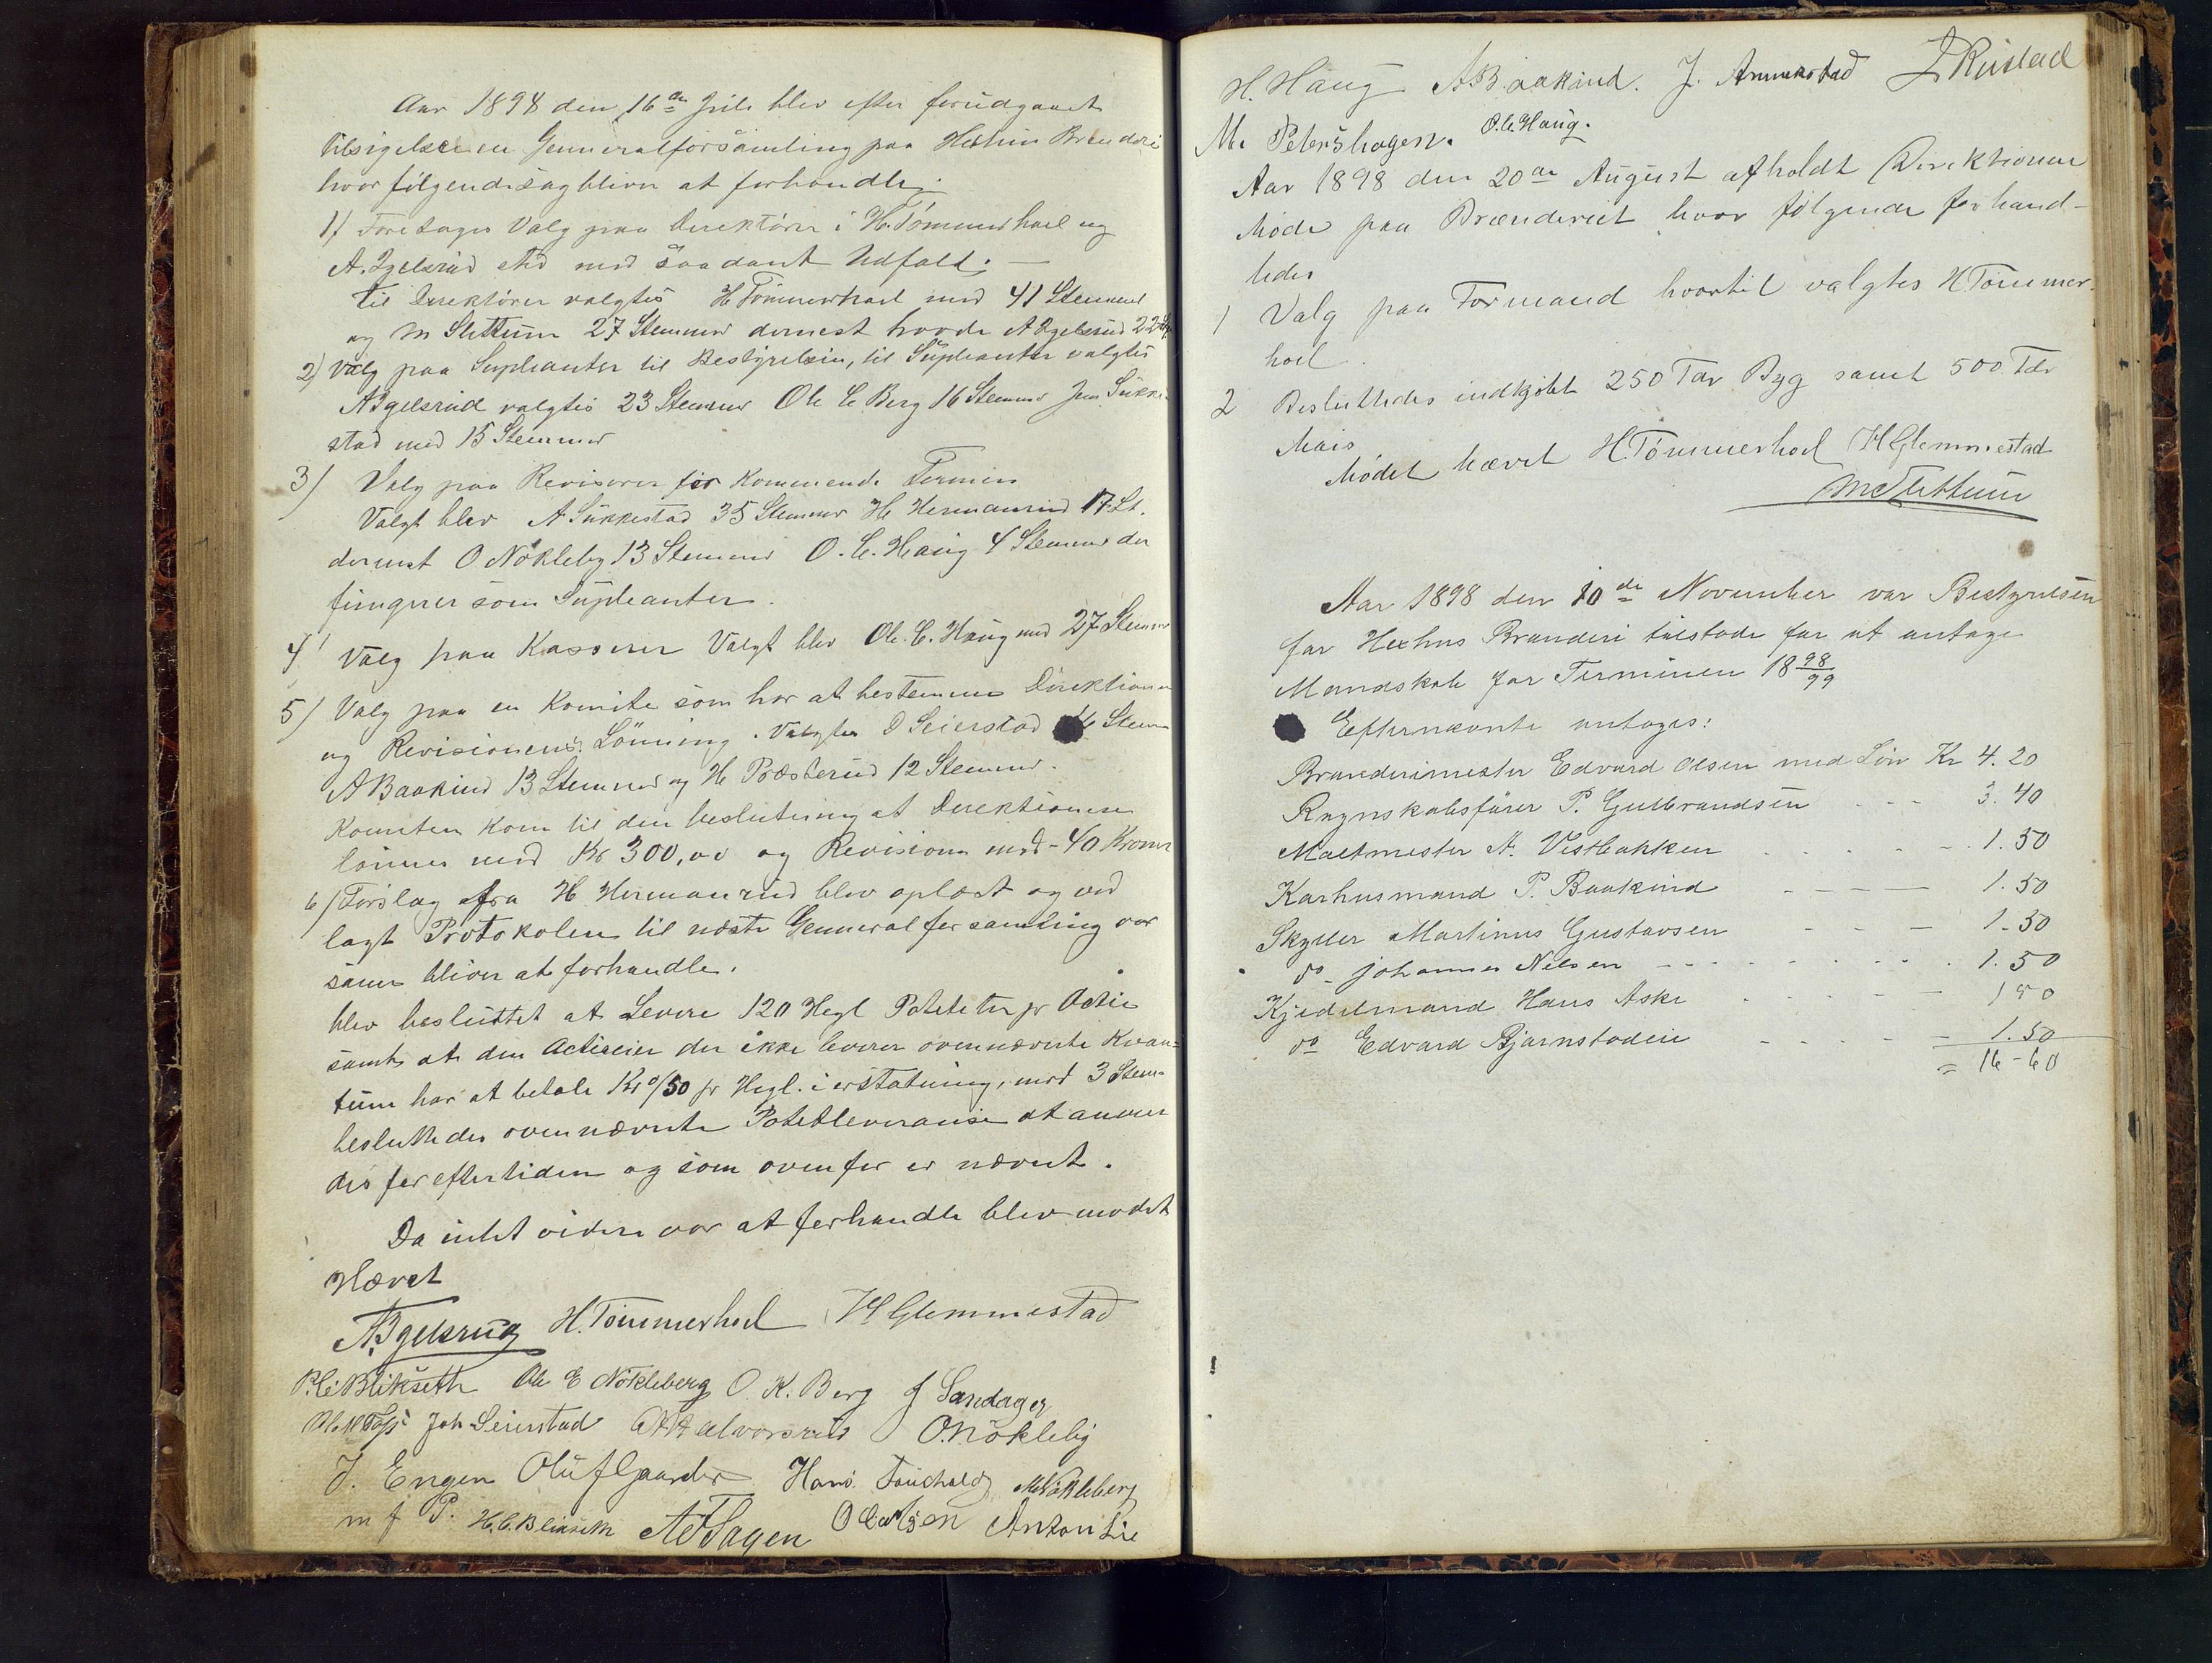 Aar 1898 den 16de Juli blev efter forudgaaet
tilsigelse en Genneralforsamling paa Hexhus Brænderi
hvor følgende sag bliver at forhandle;
1) Foretages Valg paa Direktører i H. Tømmerhoel og
A. Igelsrud sted med saadant Udfald: —
til Direktører valgtes H Tømmerhoel med 41 Stemmer
og M Slettum 27 Stemmer dernest havde A Igelsrud 22 St
2) Valg paa Supleanter til Bestyrelsen, til Supleanter valgtes
A Igelsrud valgtes 23 Stemmer Ole C. Berg 16 Stemmer Jens Sukke-
stad med 15 Stemmer
3) Valg paa Revisorer for Kommende Termin
Valgt blev A Sukkestad 35 Stemmer H Hermanrud 17 St.
dernest O Nökleby 13 Stemmer O. C. Haug 4 Stemmer der
fungerer som Supleanter.
4) Valg paa Kasserer Valgt blev Ole. C. Haug med 27 Stemmer
5) Valg paa en Komite som har at bestemme Direktionen
og Revisionens Lønning. Valgtes D Seierstad 16 Stem
A Baakind 13 Stemmer og H Præsterud 12 Stemmer.
Komiten kom til den beslutning at Direktionen
lønnes med Kr 300,00 og Revisionen med - 40 Kroner
6) Forslag fra H Hermanrud blev oplæst og ved
lagt Protokolen til næste Genneralforsamling vor
samme bliver at forhandle.
blev besluttet at Levere 120 Hegl Poteter pr Actie
samt at den Actieeier der ikke leverer ovennævnte Kvan=
tum har at betale Kr 0/50 pr Hegl. i erstatning, med 3 Stem-
besluttedes ovennævnte Potetleveranse at anven
des for eftertiden og som ovenfor er nævnt.
Da intet videre var at forhandle blev modet
Hævet
A Igelsrud H. Tömmerhoel H Glemmestad
P. C. Blikseth Ole E Nökleberg O. K. Berg J Sandager
Joh Seierstad A H alvorsrud O. Nökleby
J. Engen Oluf Gaarder Hans M Nökleberg
m f P. H. C. Blikseth A Hagen O Olsen Anton Lie
H. Haug A Baakind. J. Ammerstad L Rustad
M. Petershagen. O. C. Haug.
Aar 1898 den 20de August afholdt Direktionen
Møde paa Brænderiet hvor følgende forhand-
ledes
1 Valg paa Formand hvortil valgtes H Tömmer-
hoel.
2 Besluttedes indkjöbt 250 Tdr Byg samt 500 Tdr
Mais
Mödet hævet H. Tömmerhoel H Glemmestad
M Slettum
Aar 1898 den 10de November var Bestyrelsen
for Hexhus Brænderi tilstede for at antage
Mandskab for Terminen 18 98/99
Efternævnte antages:
Brænderimester Edvard Olsen med Løn Kr 4.20
Regnskabsfører P. Gulbrandsen - - - 3.40
Maltmester A. Vestbakken - - - - 1.50
Karhusmand P. Baakind - - - - 1.50
Skyller Martinus Gustavsen - - - 1.50
do Johannes Nilsen - - - - 1.50
Kjedelmand Hans Aske - - - - 1 50
do Edvard Bjørnstadeie - - - - 1.50
= 16-60